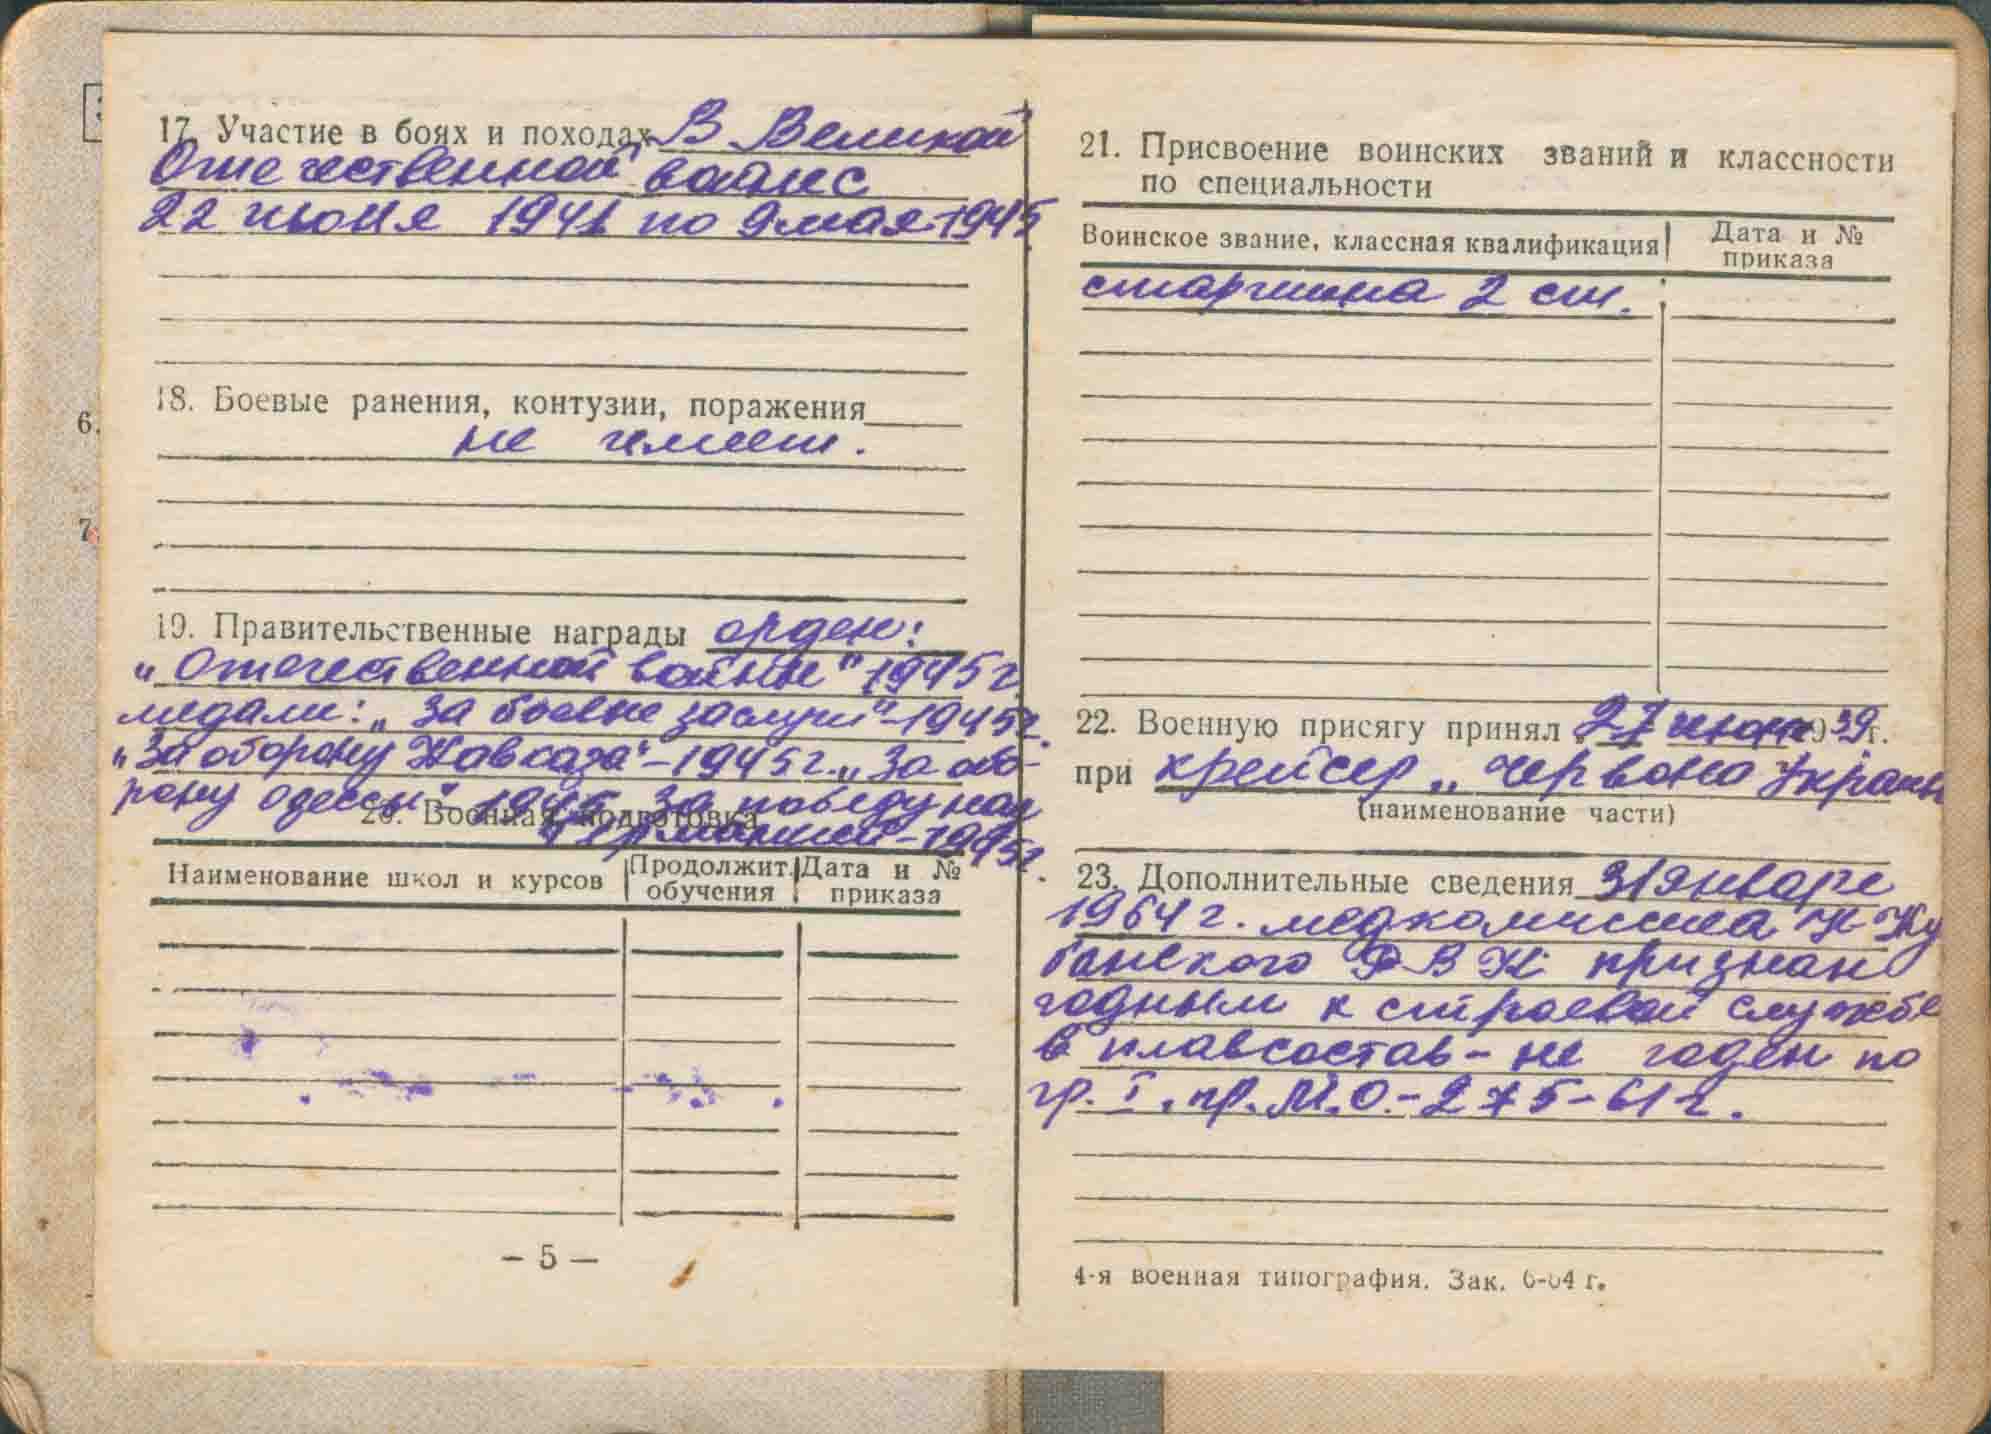 17. Участие в боях и походах В Великой
Отечественной войне с
22 июня 1941 по 9 мая 1945
18. Боевые ранения, контузии, поражения
не имеет.
19. Правительственные награды орден:
„Отечественной войны" 1945 г.
медали: „За боевые заслуги"-1945 г.
„За оборону Кавказа"-1945 г. „За обо-
рону одессы"-1945 За победу над
германией-1945 г.
20. Военная подготовка
Наименование школ и курсов
Продолжит. обучения
Дата и № приказа
– 5 –
21. Присвоение воинских званий и классности
по специальности
Воинское звание, классная квалификация
Дата и №
приказа
старшина 2 ст.
22. Военную присягу принял 27 1939 г.
при крейсер „Червона Украин
(наименование части)
23. Дополнительные сведения 31 января
1964 г. медкомиссиа Ку
банского РВК признан
годным к строевой службе
в плавсостав - не годен по
гр. I. пр. М.О.-275-61 г.
4-я военная типография. Зак. 6-64 г.
6.
7.